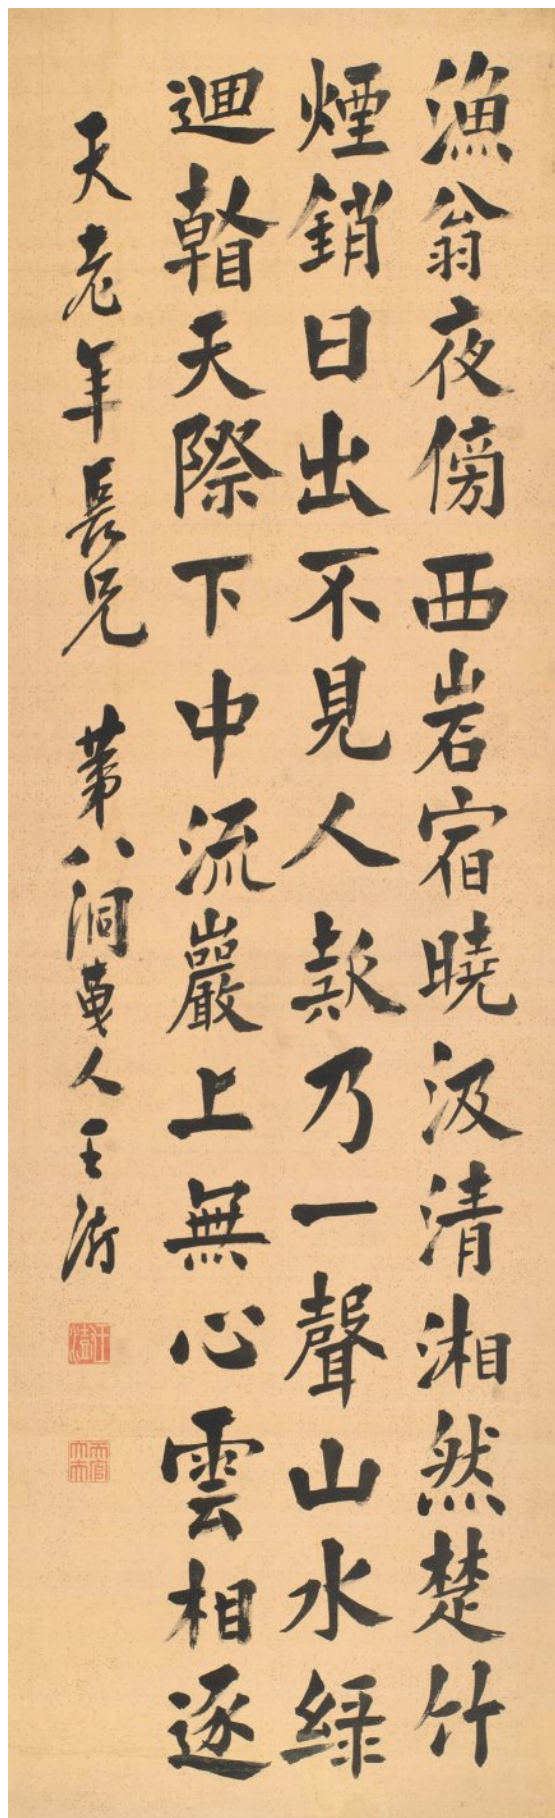 漁翁夜傍西岩宿曉汲清湘然楚竹
煙銷日出不見人欸乃一聲山水綠
迴看天際下中流巖上無心雲相逐
天老年長兄 第八洞人王澍